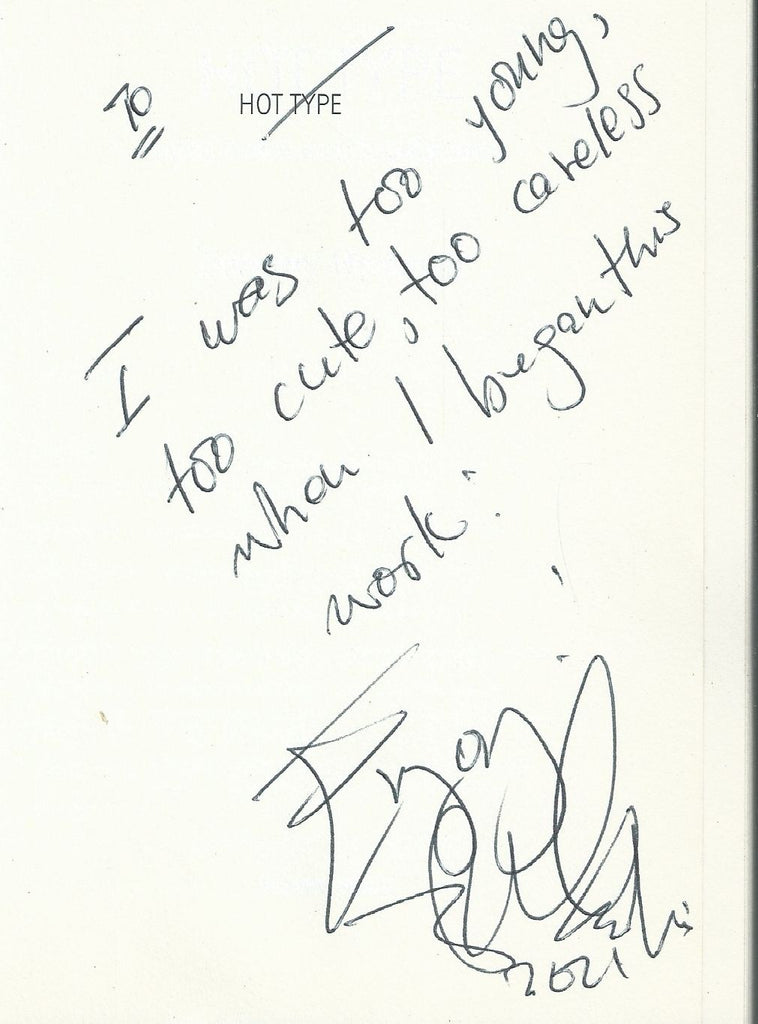 To
HOT TYPE
I was too young,
too cute, too careless
when I began this
work.
2021